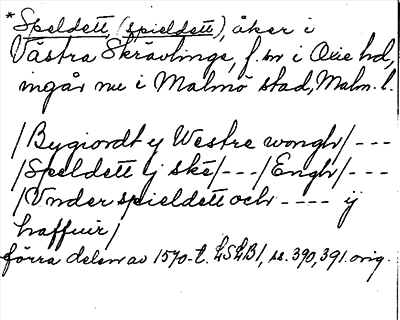 *Speldett, (spieldett), åker i
Västra Skrävlinge, f. sn i Oxie hd,
ingår nu i Malmö stad, Malm. l.
/Bygiordt y Westre wongh/ ---
/Speldett y ske/---/Engh/---
/Vnder spieldett och ---- ij
haffuir/
förra delen av 1570-t. LSLB1, ss. 390, 391. orig.